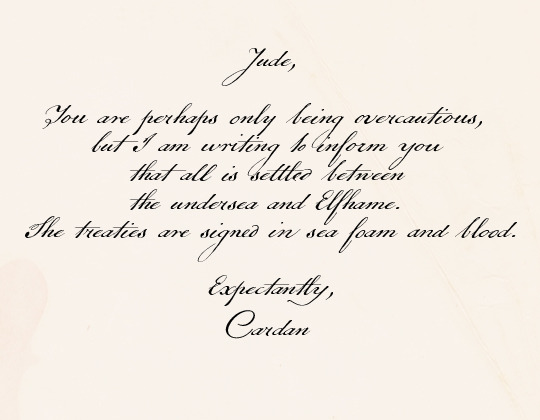 Jude,
You are perhaps only being overcautious,
but I am writing to inform you
that all is settled between
the undersea and Elfhame.
The treaties are signed in sea foam and blood.
Expectantly,
Cardan